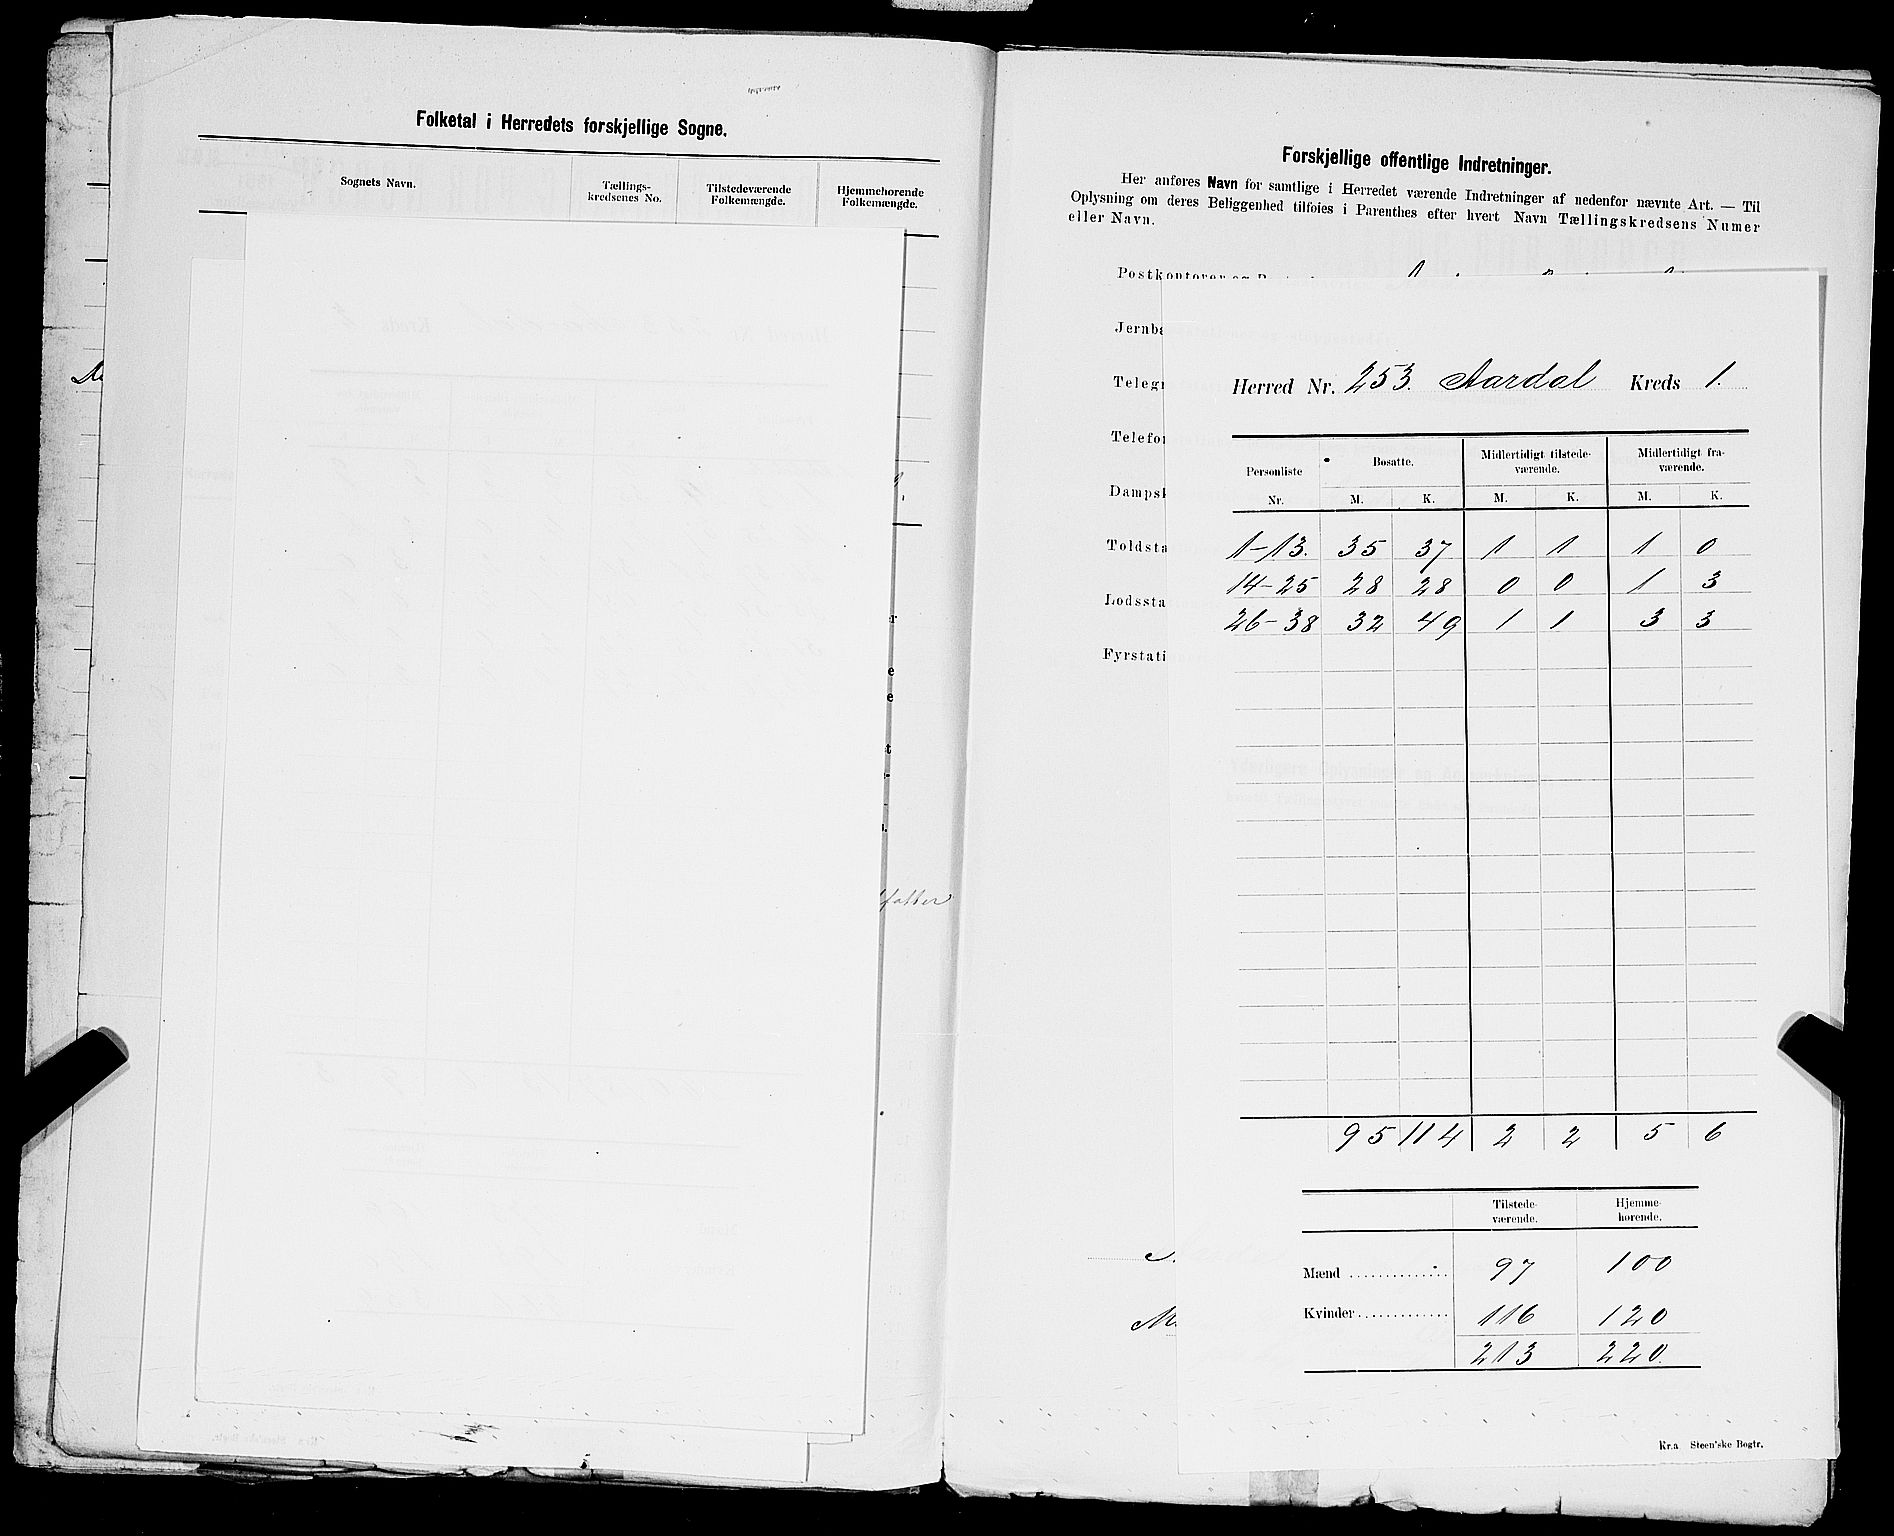 Folketal i Herredets forskjellige Sogne.
Sognets Navn.
Tællings-
kredsenes No.
Tilstedeværende
Folkemængde.
Hjemmehørende
Folkemængde.
Forskjellige offentlige Indretninger.
Her anføres Navn for samtlige i Herredet værende Indretninger af nedenfor nævnte Art. — Til
Oplysning om deres Beliggenhed tilføies i Parenthes efter hvert Navn Tællingskredsens Numer
eller Navn.
Postkontorer og
Jernba
Telegr
Telefo
Dampsk
Toldsta
Lodssta
Fyrstati
Herred Nr. 253. Aardal Kreds 1.
Personliste Bosatte. Midlertidigt tilstede-
værende. Midlertidigt fra-
værende.
Nr. M. K. M. K. M. K.
1-13. 35 37 1 1 1 0
14-25 28 28 0 0 1 3
26-38 32 49 1 1 3 3
95 114 2 2 5 6
Tilstede-
værende. Hjemme-
hørende.
Mænd 97 100
Kvinder 116 120
213 220.
Kr.a Steen'ske Bogtr.